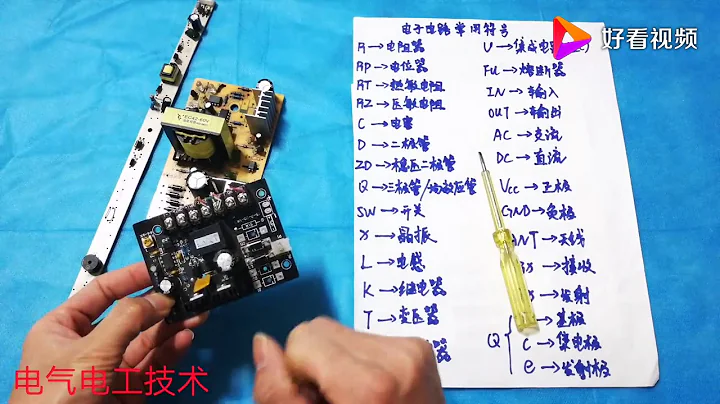 电子电路常用符号
好看视频
R→电阻器
RP→电位器
RT→热敏电阻
RZ→压敏电阻
C→电容
D→二极管
ZD→稳压二极管
Q→三极管/场效应管
SW→开关
X→晶振
L→电感
K→继电器
T→变压器
U→集成电
FU→熔断器
IN→输入
OUT→输出
AC→交流
DC→直流
Vcc→正极
GND→负极
ANT→天线
→接收
→发射
Q
→基极
C→集电极
e→发射极
电气电工技术